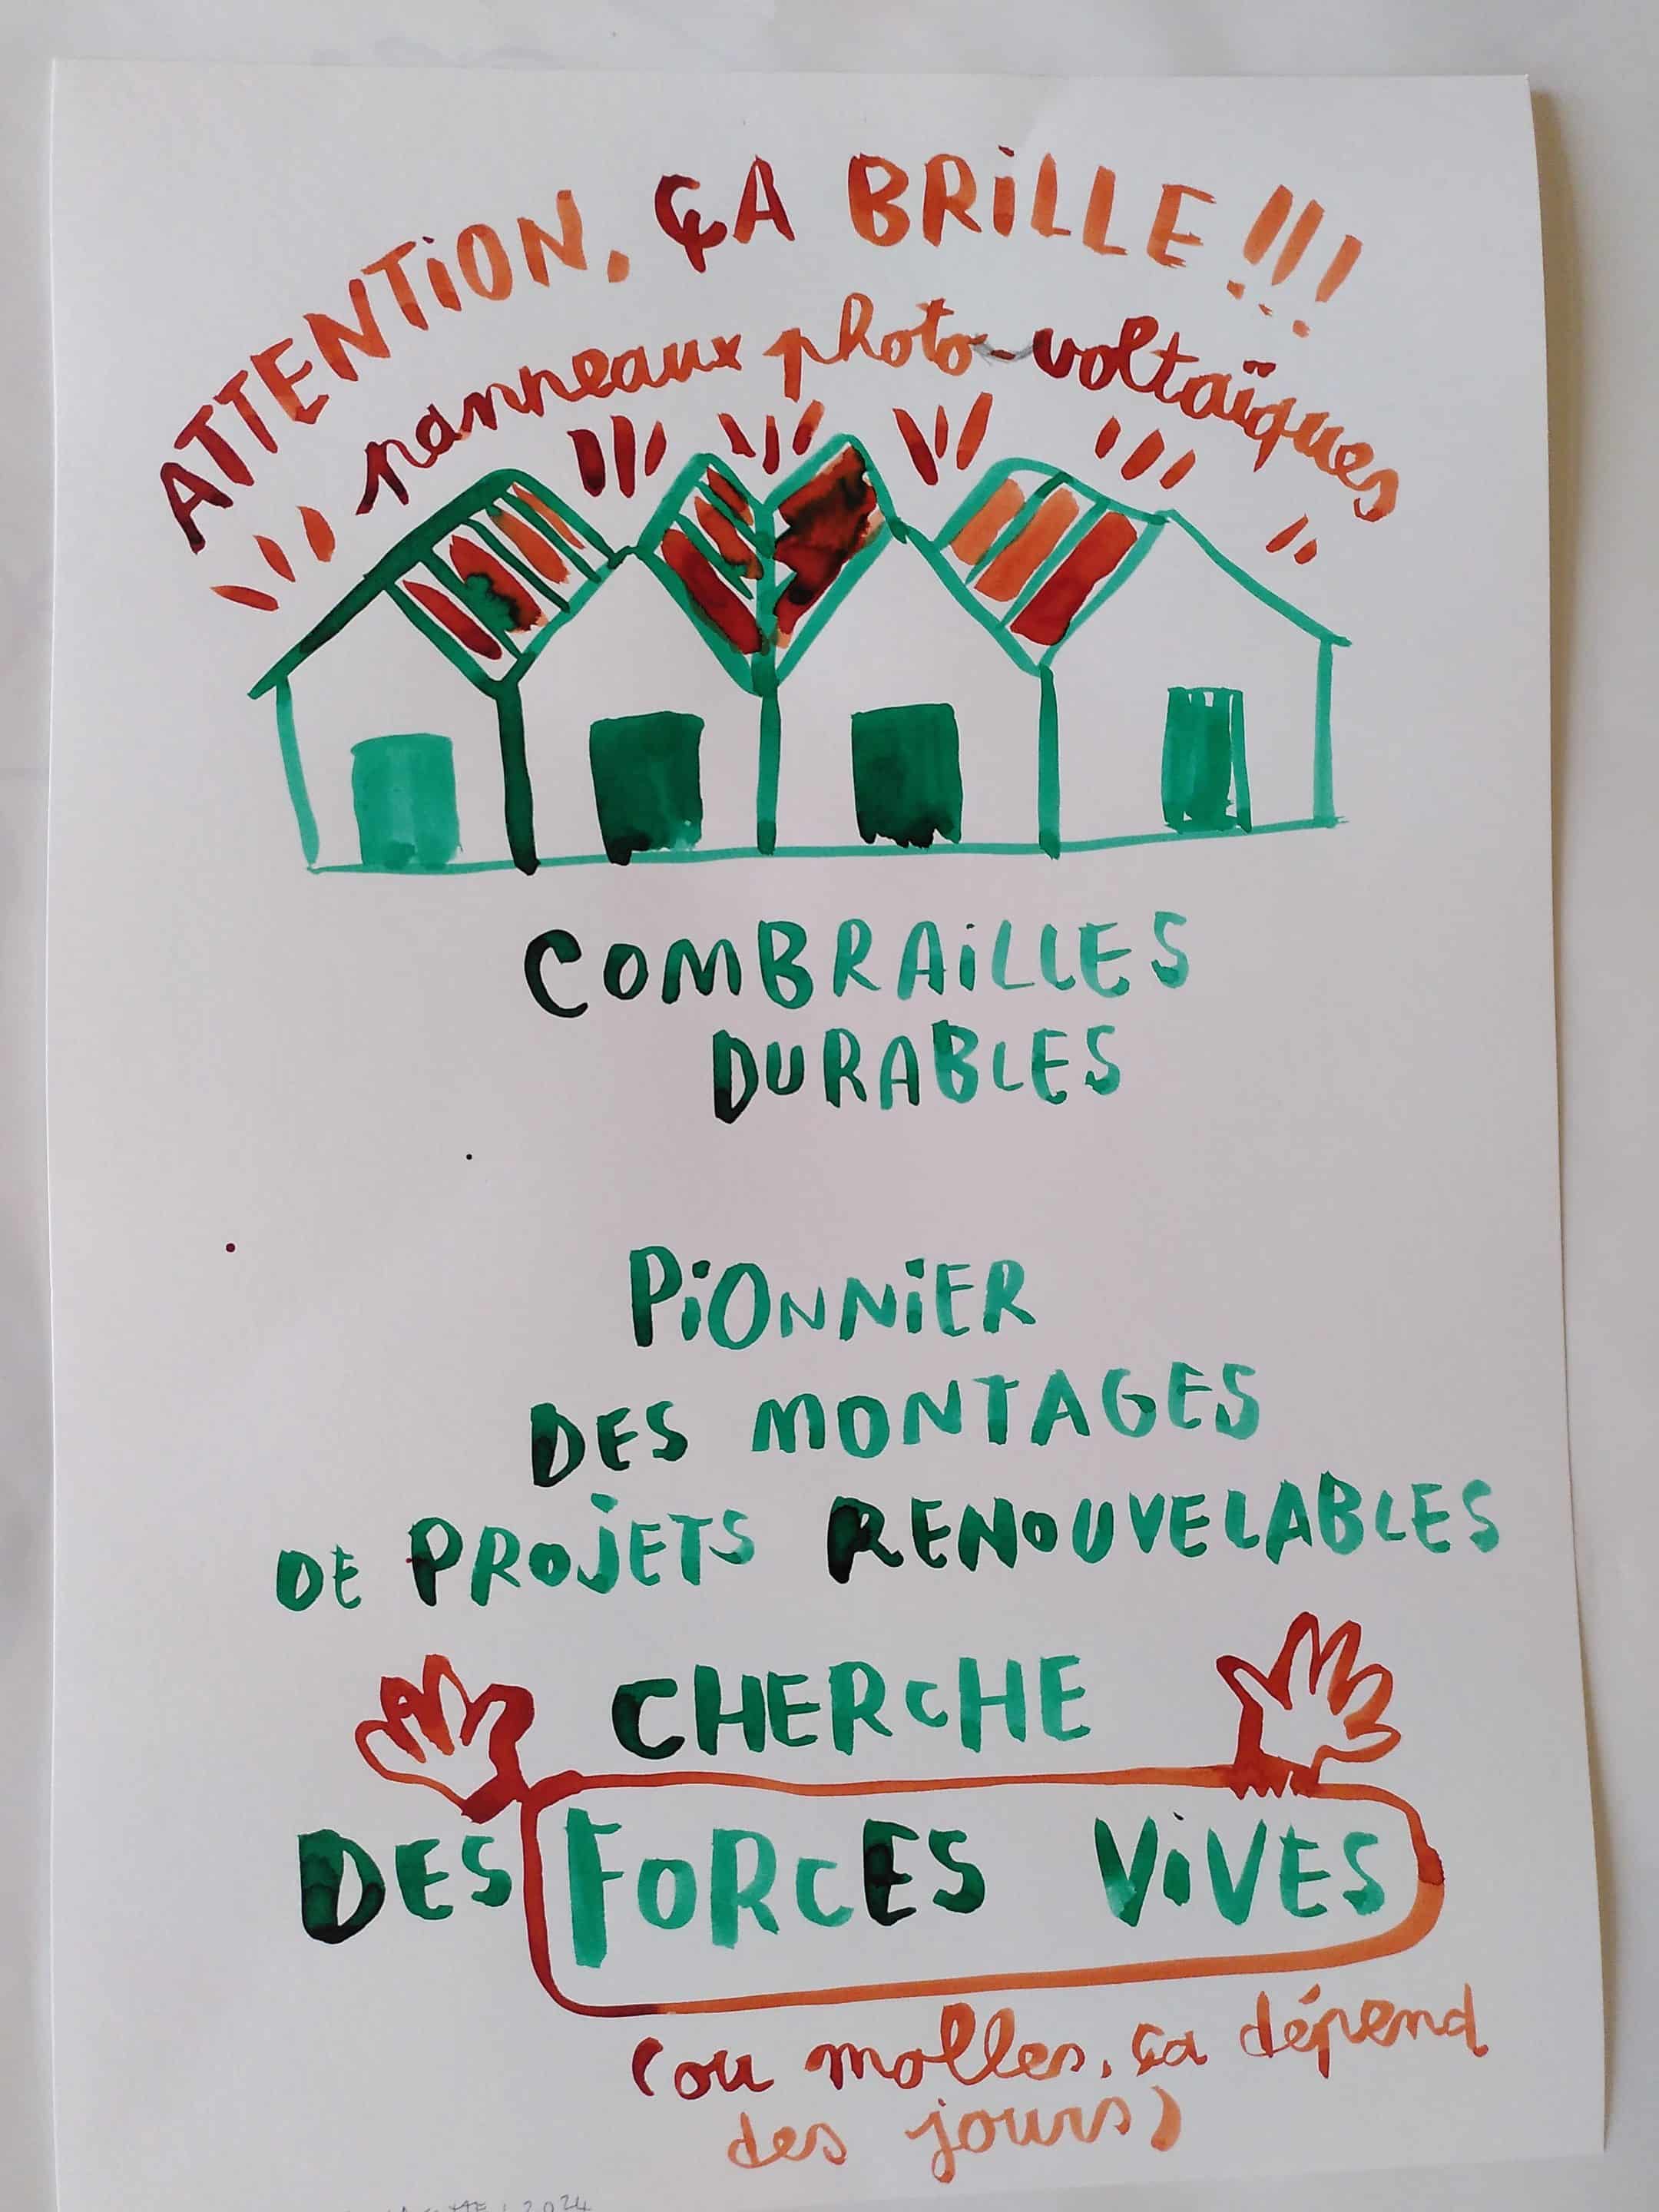 ATTENTION, ÇA BRILLE !!!
panneaux photo-voltaïques
COMBRAILLES
DURABLES
PIONNIER
DES MONTAGES
DE PROJETS RENOUVELABLES
CHERCHE
DES FORCES VIVES
(ou molles, ça dépend
des jours)
2024